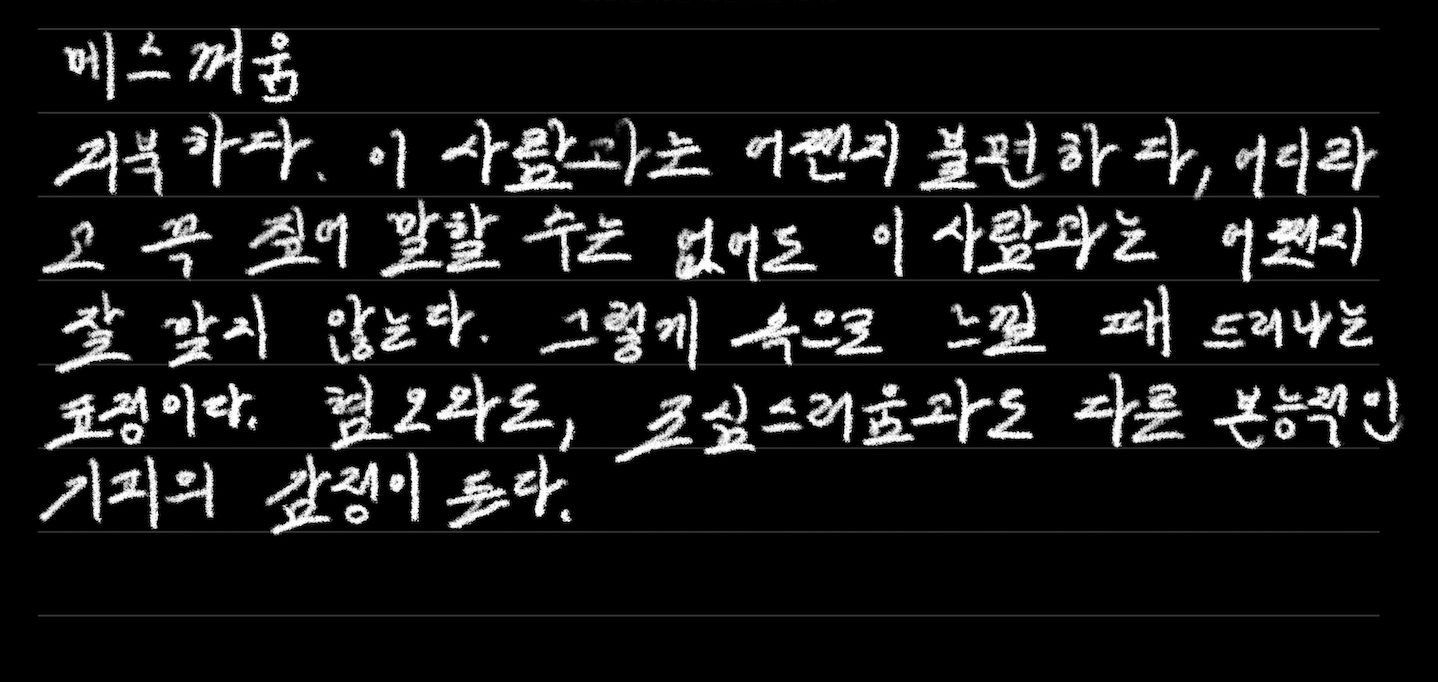 메스꺼움
거북하다. 이 사람과는 어쩐지 불편하다, 어디라
고 꼭 짚어 말할 수는 없어도 이 사람과는 어쩐지
잘 맞지 않는다. 그렇게 속으로 느낄 때 드러나는
표정이다. 혐오와도, 근심스러움과도 다른 본능적인
기피의 감정이 든다.